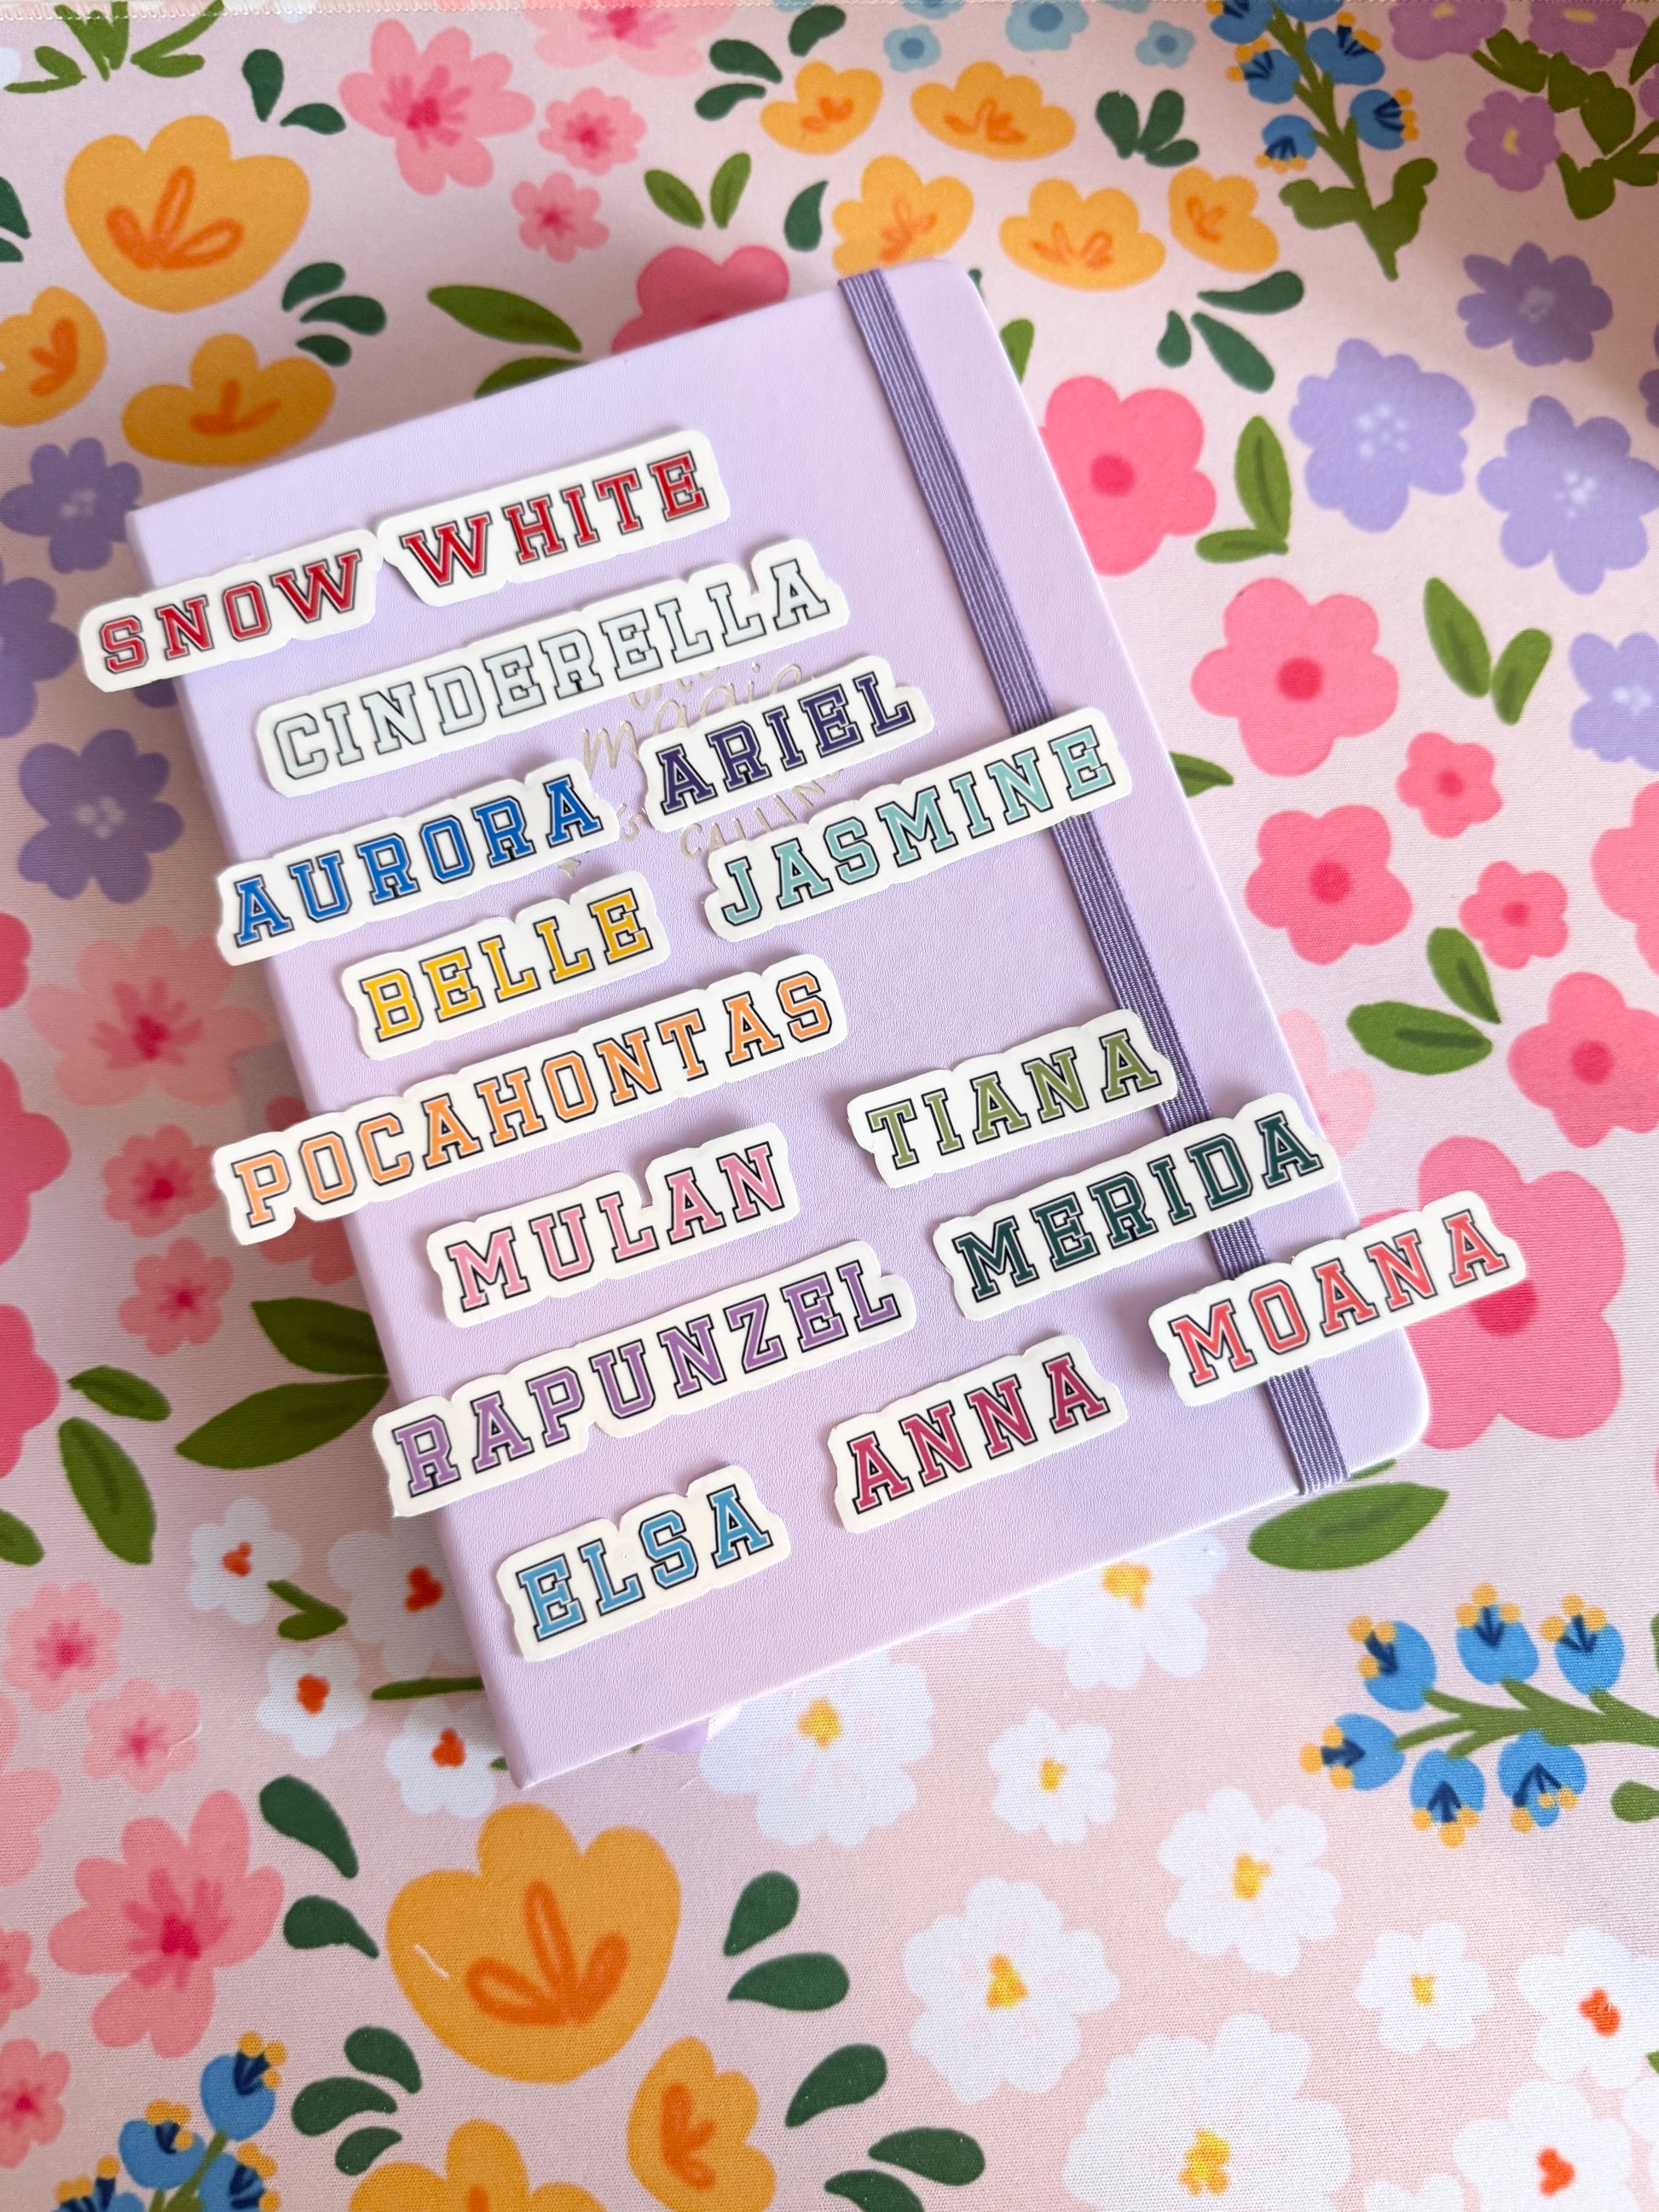 SNOW WHITE
CINDERELLA
magic
CALLIN
AURORA
ARIEL
BELLE
JASMINE
POCAHONTAS
TIANA
MULAN
MERIDA
RAPUNZEL
MOANA
ELSA
ANNA